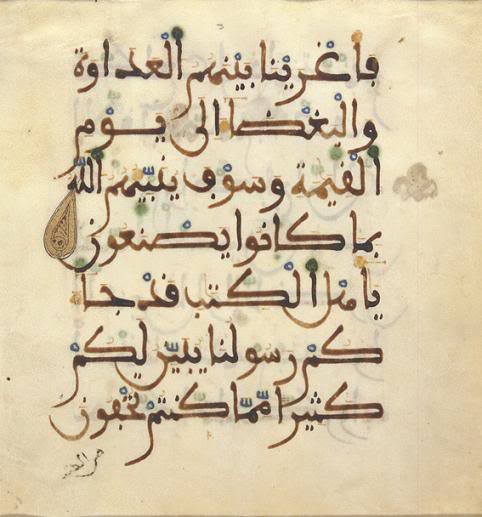 فاغرينا بينهم العداوة
والبغضا الى يوم
القيمة وسوف ينبيهم الله
بما كانوا يصنعون
ياهل الكتب قد جا
كم رسولنا يبين لكم
كثيرا مما كنتم تخفون
من